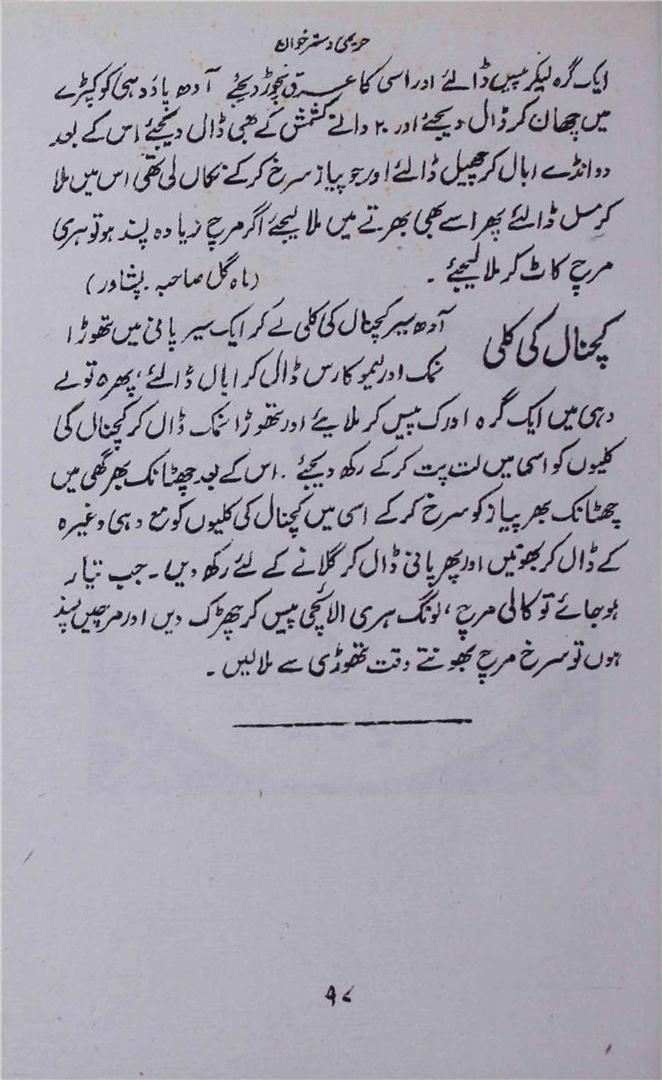 حریمی دسترخوان
ایک گرہ لیکر پیس ڈالئے اور اسی کا عرق نچوڑ دیجئے آدھ پاؤ دہی کو کپڑے
میں چھان کر ڈال دیجئے اور ۲۰ دانے کشمش کے بھی ڈال دیجئے اس کے بعد
دو انڈے ابال کر چھیل ڈالئے اور جو پیاز سرخ کر کے نکال لی تھی اس میں ملا
کر مسل ڈالئے پھر اسے بھی بھرتے میں ملا لیجئے اگر مرچ زیادہ پسند ہو تو ہری
مرچ کاٹ کر ملا لیجئے ۔ (ماہ گل صاحبہ ۔ پشاور)
کچنال کی کلی
آدھ سیر کچنال کی کلی لے کر ایک سیر پانی میں تھوڑا
نمک اور لیمو کا رس ڈال کر ابال ڈالئے، پھر ۵ تولے
دہی میں ایک گرہ ادرک پیس کر ملایئے اور تھوڑا نمک ڈال کر کچنال کی
کلیوں کو اسی میں لت پت کر کے رکھ دیجئے ۔ اس کے بعد چھٹانک بھر گھی میں
چھٹانک بھر پیاز کو سرخ کر کے اسی میں کچنال کی کلیوں کو مع دہی وغیرہ
کے ڈال کر بھونیں اور پھر پانی ڈال کر گلانے کے لئے رکھ دیں ۔ جب تیار
ہو جائے تو کالی مرچ، لونگ ہری الائچی پیس کر چھڑک دیں اور مرچیں پسند
ہوں تو سرخ مرچ بھونتے وقت تھوڑی سے ملالیں ۔
۹۷